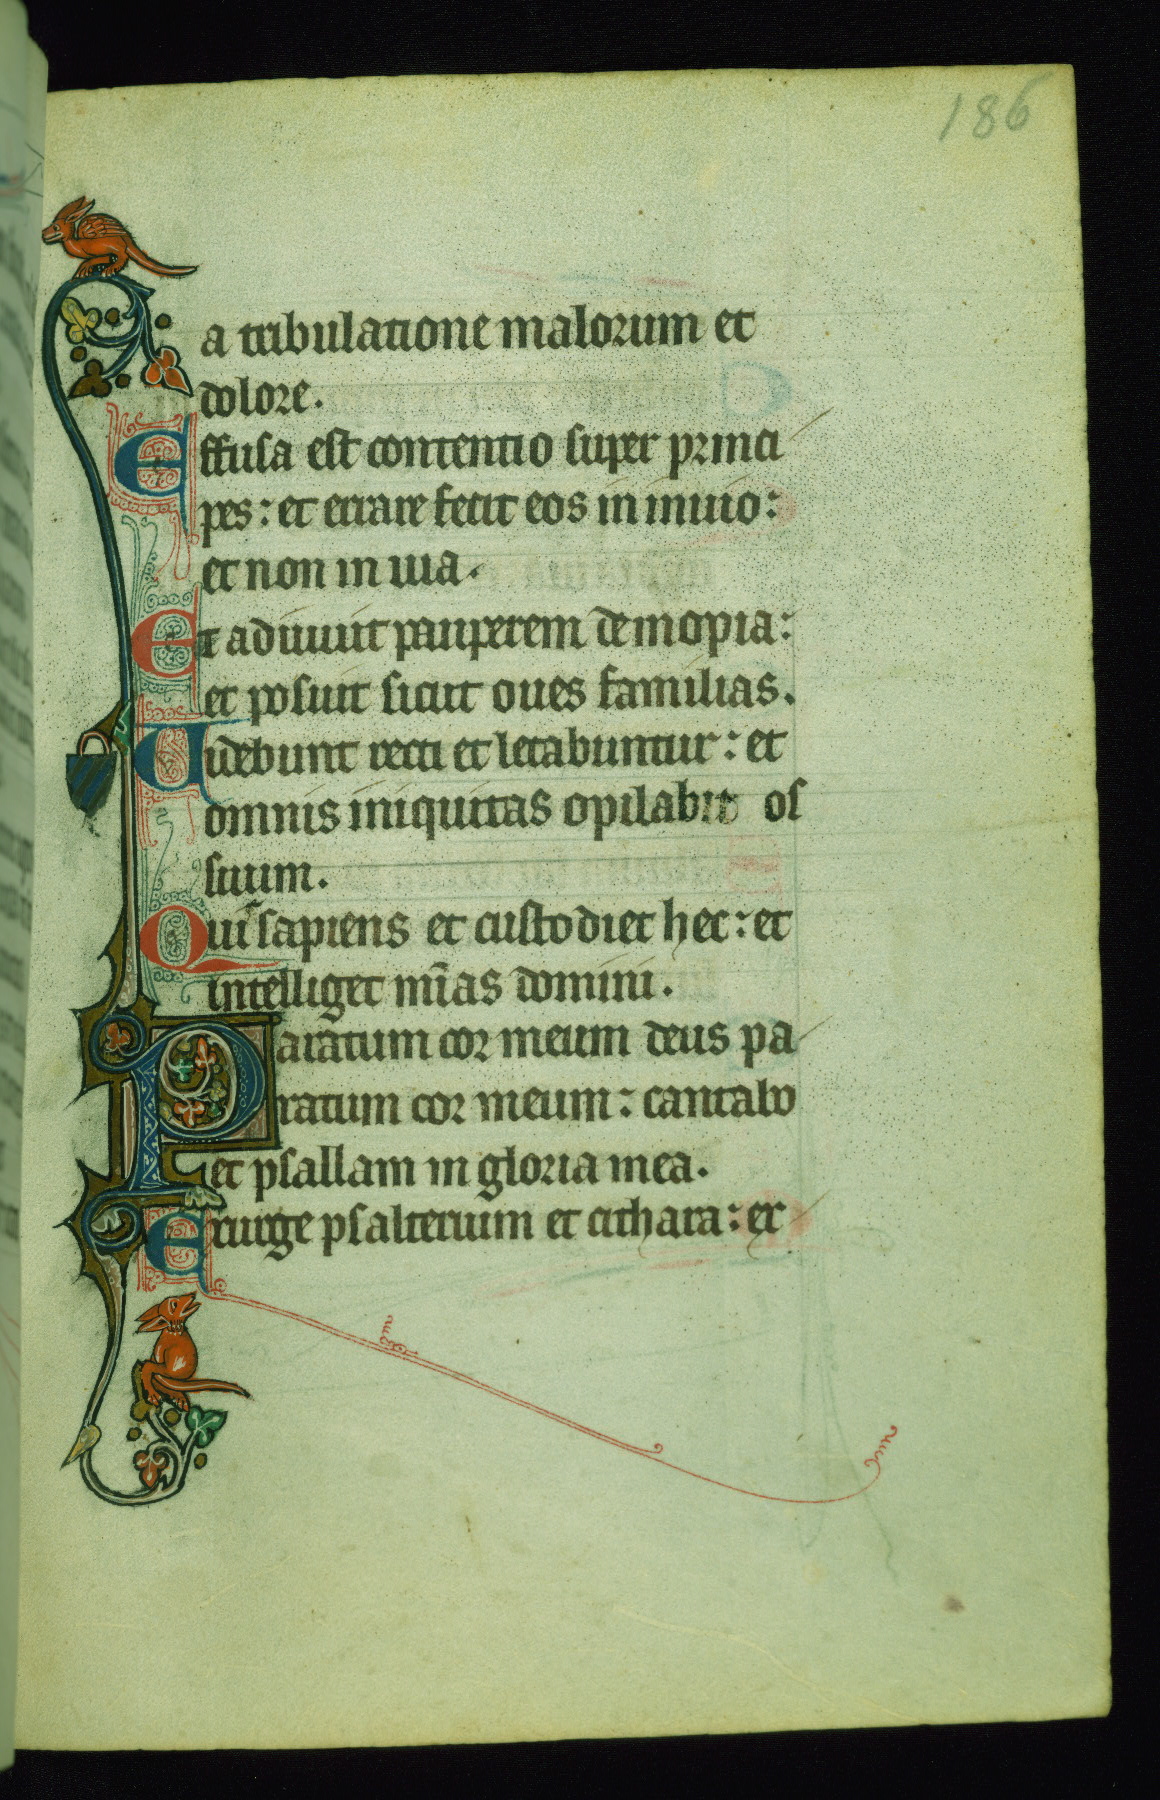 186
a tribulatione malorum et
dolore.
Effusa est contentio super princi
pes: et errare fecit eos in inuio:
et non in uia.
Et adiuuit pauperem de inopia:
et posuit sicut oues familias.
Uidebunt recti et letabuntur: et
omnis iniquitas opilabit os
suum.
Quis sapiens et custodiet hec: et
intelliget mĩas domini.
Paratum cor meum deus pa
ratum cor meum: cantabo
et psallam in gloria mea.
Exurge psalterium et cithara: ex